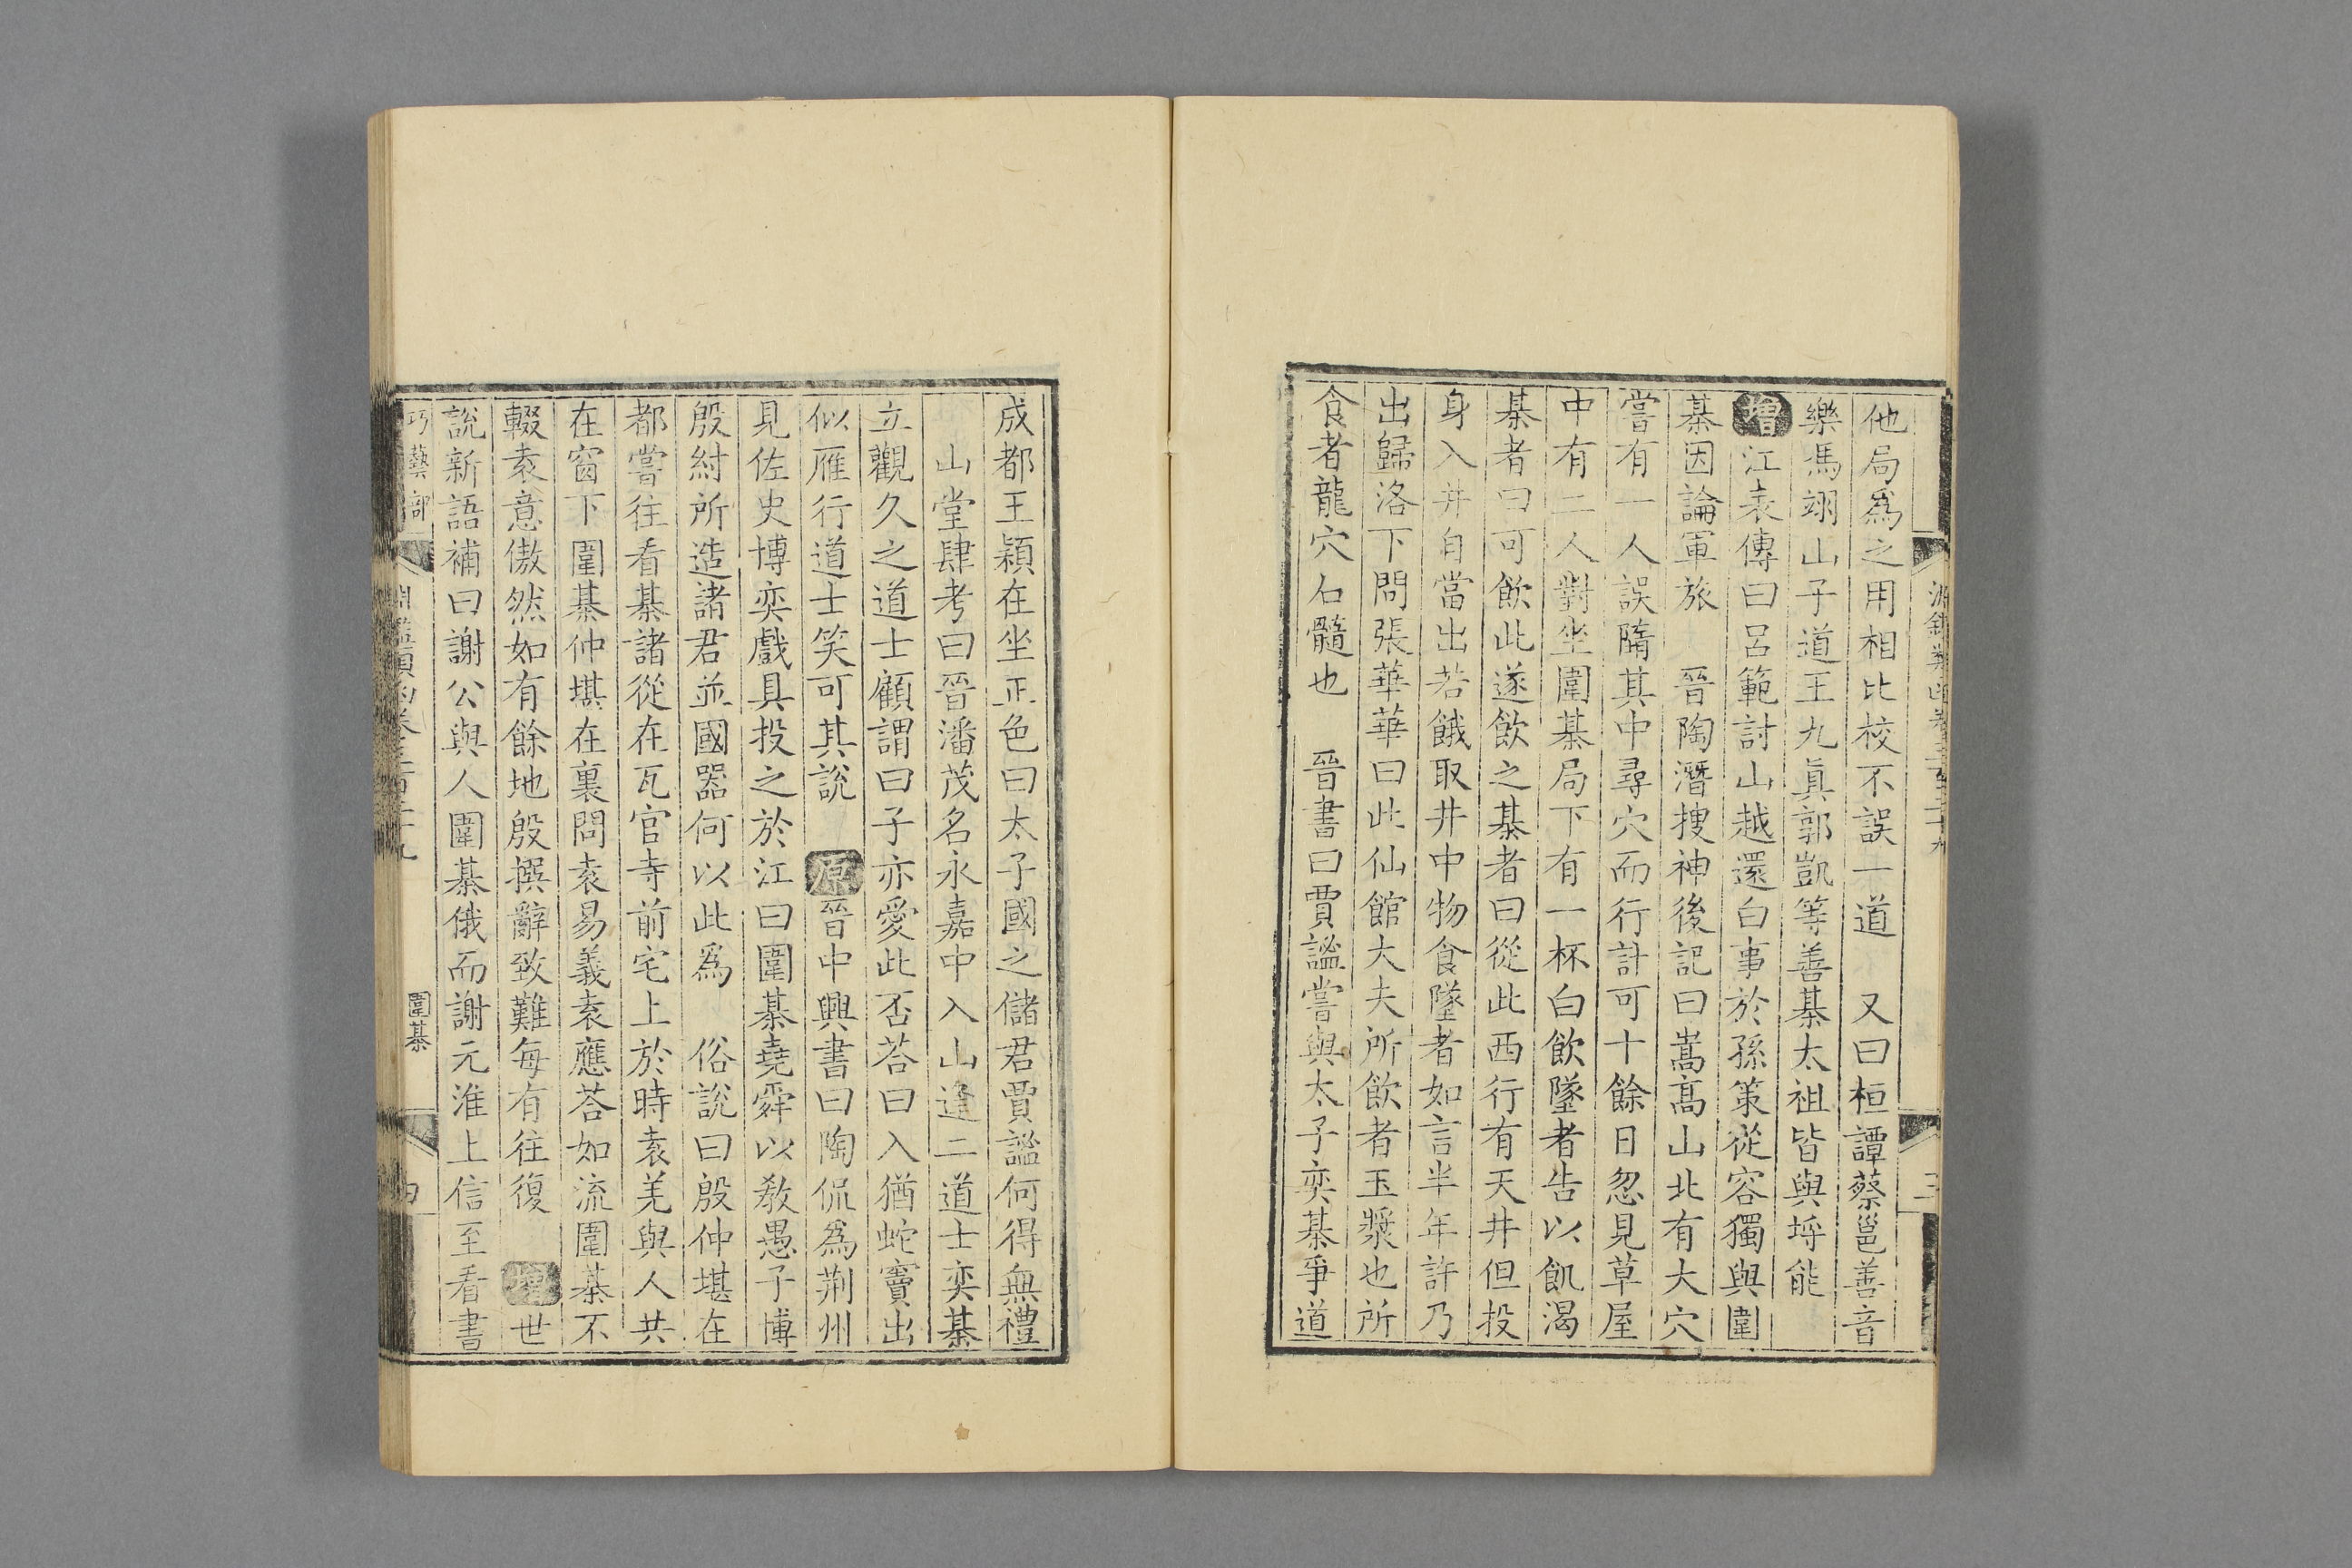 他局爲之用相比校不誤一道　又曰桓譚蔡邕善音
樂馮翊山子道王九眞郭凱等善棊太祖皆與埒能
增江表傳曰呂範討山越還白事於孫策從容獨與圍
棊因論軍旅　晉陶潛搜神後記曰嵩髙山北有大穴
嘗有一人誤隋其中尋穴而行計可十餘日忽見草屋
中有二人對坐圍棊局下有一杯白飲墜者告以飢渴
棊者曰可飲此遂飲之棊者曰從此西行有天井但投
身入井自當出若餓取井中物食墜者如言半年許乃
出歸洛下問張華華曰此仙館大夫所飲者玉漿也所
食者龍穴石髓也　晉書曰賈謐嘗與太子奕棊爭道
三
成都王穎在坐正色曰太子國之儲君賈謐何得無禮
山堂肆考曰晉潘茂名永嘉中入山逢二道士奕棊
立觀久之道士顧謂曰子亦愛此否荅曰入猶蛇竇出
似雁行道士笑可其說　原晉中興書曰陶侃爲荆州
見佐史博奕戲具投之於江曰圍棊堯舜以敎愚子博
殷紂所造諸君並國器何以此爲　俗說曰殷仲堪在
都嘗往看棊諸從在瓦官寺前宅上於時袁羌與人共
在窗下圍棊仲堪在裏問袁易義袁應荅如流圍棊不
輟袁意傲然如有餘地殷撰辭致難每有往復　增世
說新語補曰謝公與人圍棊俄而謝元淮上信至看書
巧藝部
圍棊